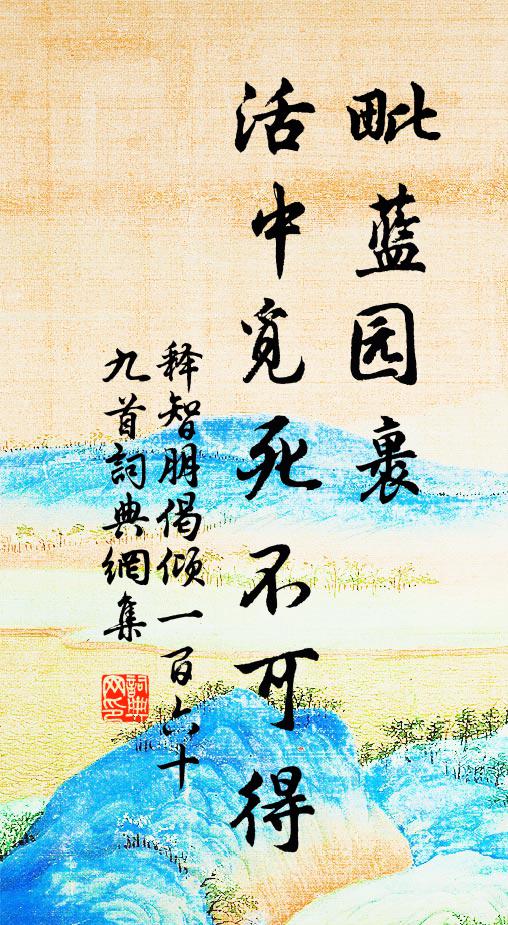 毗蓝园裹
活中觅死不可得
释智朋偈倾一百六十
九首詞典網集
詞典网印